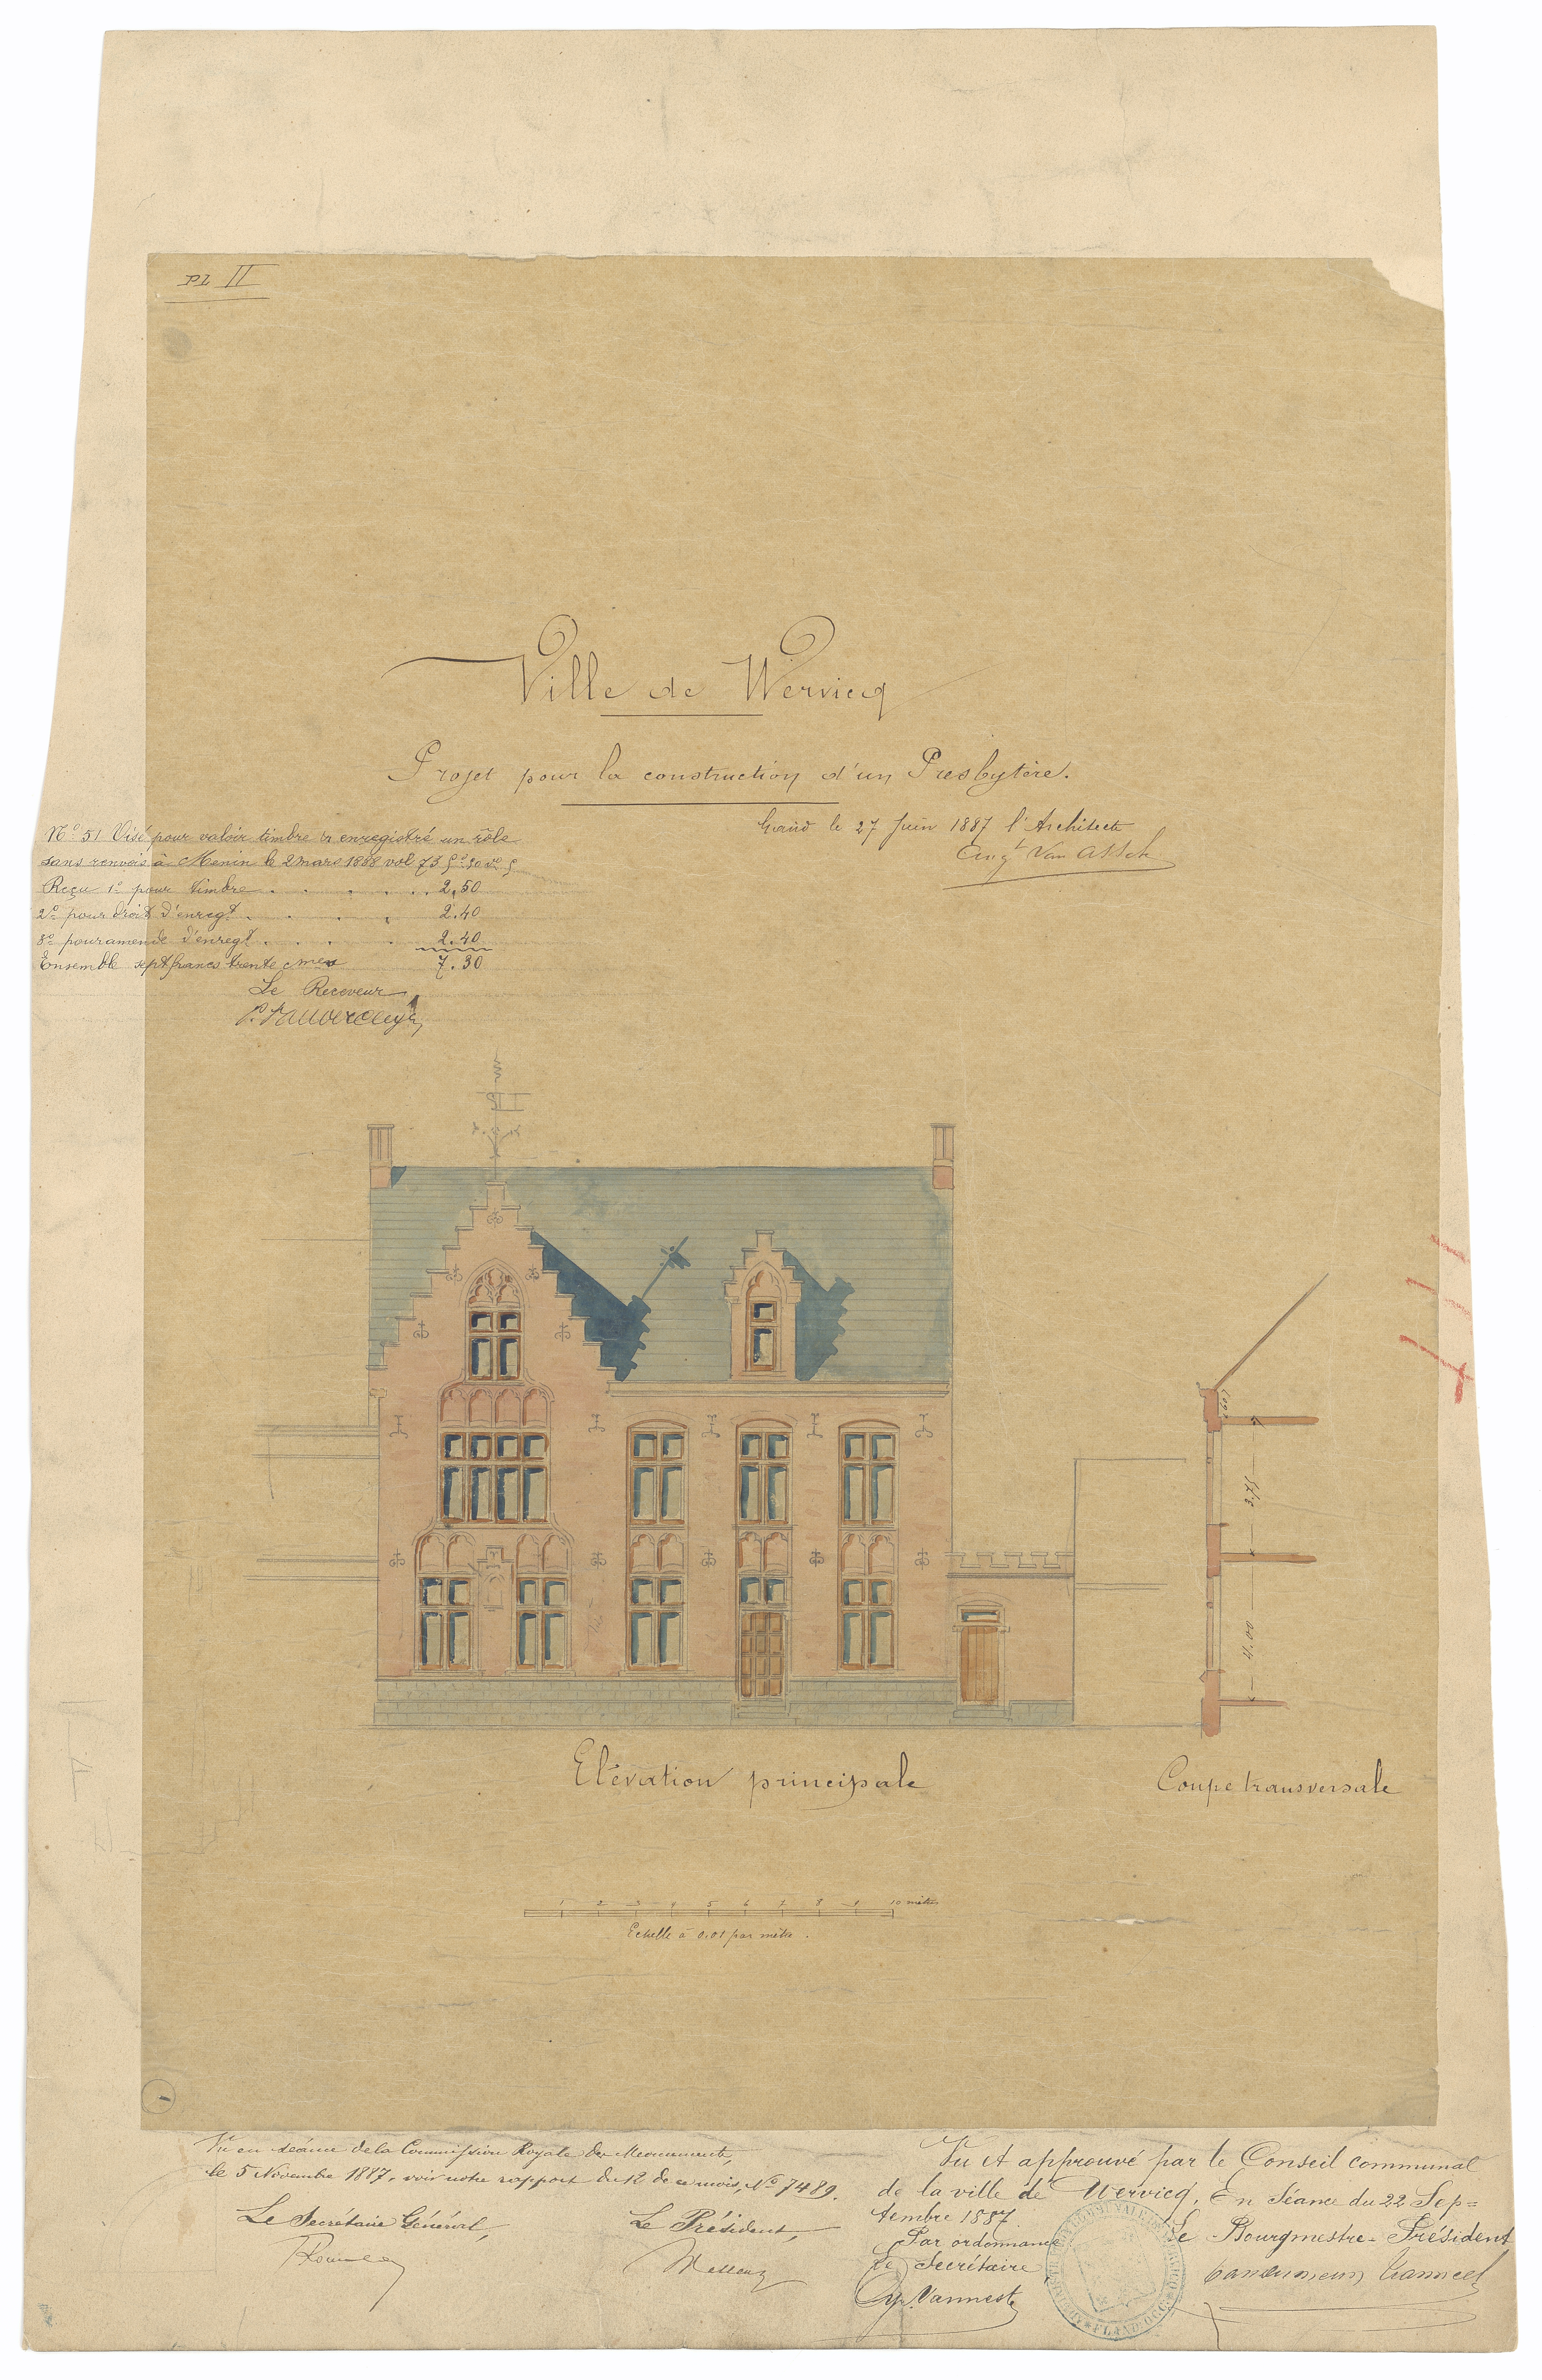 Pl II
Ville de Wervicq
Projet pour la construction d'un Presbytère.
Gand le 27 Juin 1887 l'Architecte
Aug^t Van Assche
N° 51 Visé pour valoir timbre & enregistré un rôle
sans renvois à Menin le 2 mars 1888 vol 73 f° 50 v°
Reçu 1° pour timbre . . . . . . 2.50
2° pour droit d'enreg^t . . . . 2.40
3° pour amende d'enreg^t . . . . 2.40
Ensemble sept francs trente cmes 7.30
Le Receveur
Elévation principale
Coupe transversale
3,75
4,00
1 2 3 4 5 6 7 8 9 10 mètres
Echelle à 0.01 par mètre.
Vu en séance de la Commission Royale des Monuments,
le 5 Novembre 1887, voir notre rapport du 12 de ce mois, N° 7489.
Le Secrétaire Général,
Le Président,
Vu et approuvé par le Conseil communal
de la ville de Wervicq, En Séance du 22 Sep=
tembre 1887
Par ordonnance
Le Secrétaire
Cyr. Vanneste
Le Bourgmestre-Président